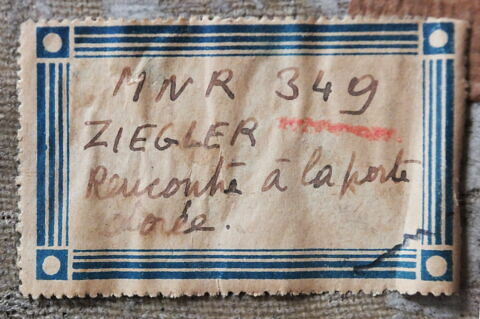 MNR 349
ZIEGLER
Rencontre à la porte
dorée.